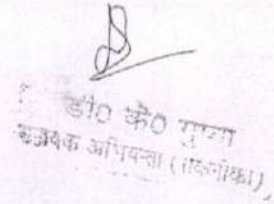 डी0 के0 गुप्ता
सहायक अभियन्ता (तकनीकी),